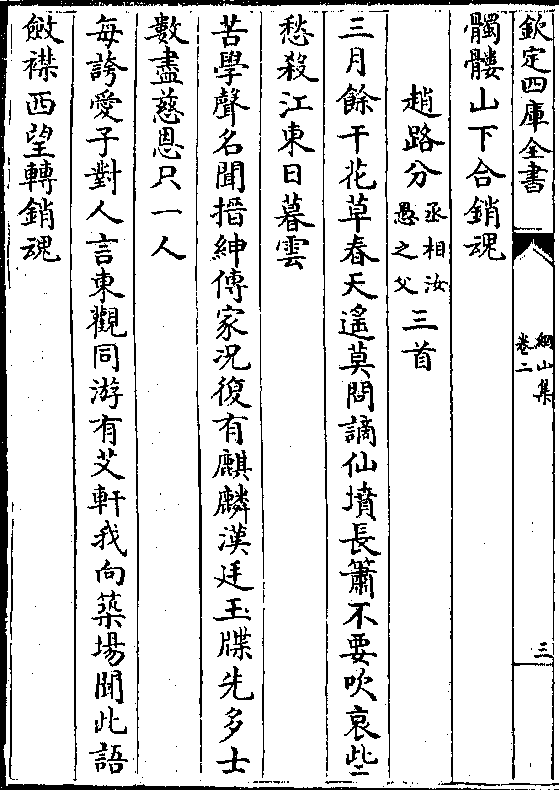 欽定四庫全書
網山集
卷二
三
髑髏山下合銷魂
趙路分丞相汝愚之父三首
三月餘干花草春天遙莫問謫仙墳長簫不要吹哀些
愁殺江東日暮雲
苦學聲名聞搢紳傳家況復有麒麟漢廷玉牒先多士
數盡慈恩只一人
每誇愛子對人言東觀同游有艾軒我向築場聞此語
斂襟西望轉銷魂